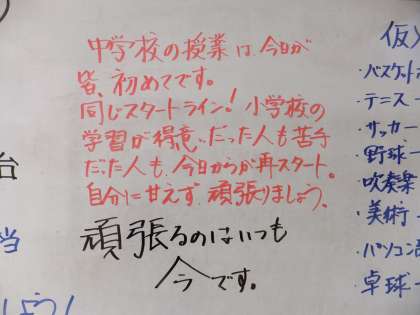 中学校の授業は、今日が
皆、初めてです。
同じスタートライン!小学校の
学習が得意だった人も苦手
だった人も、今日からが再スタート。
自分に甘えず、頑張りましょう。
頑張るのはいつも
今です。
仮入
・バスケット
・テニス
・サッカー
・野球
・吹奏楽
・美術
・パソコン
・卓球
台
当
しょう!